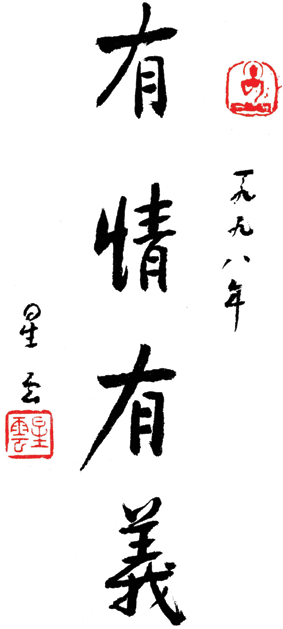 一九九八年
有情有義
星云
星雲